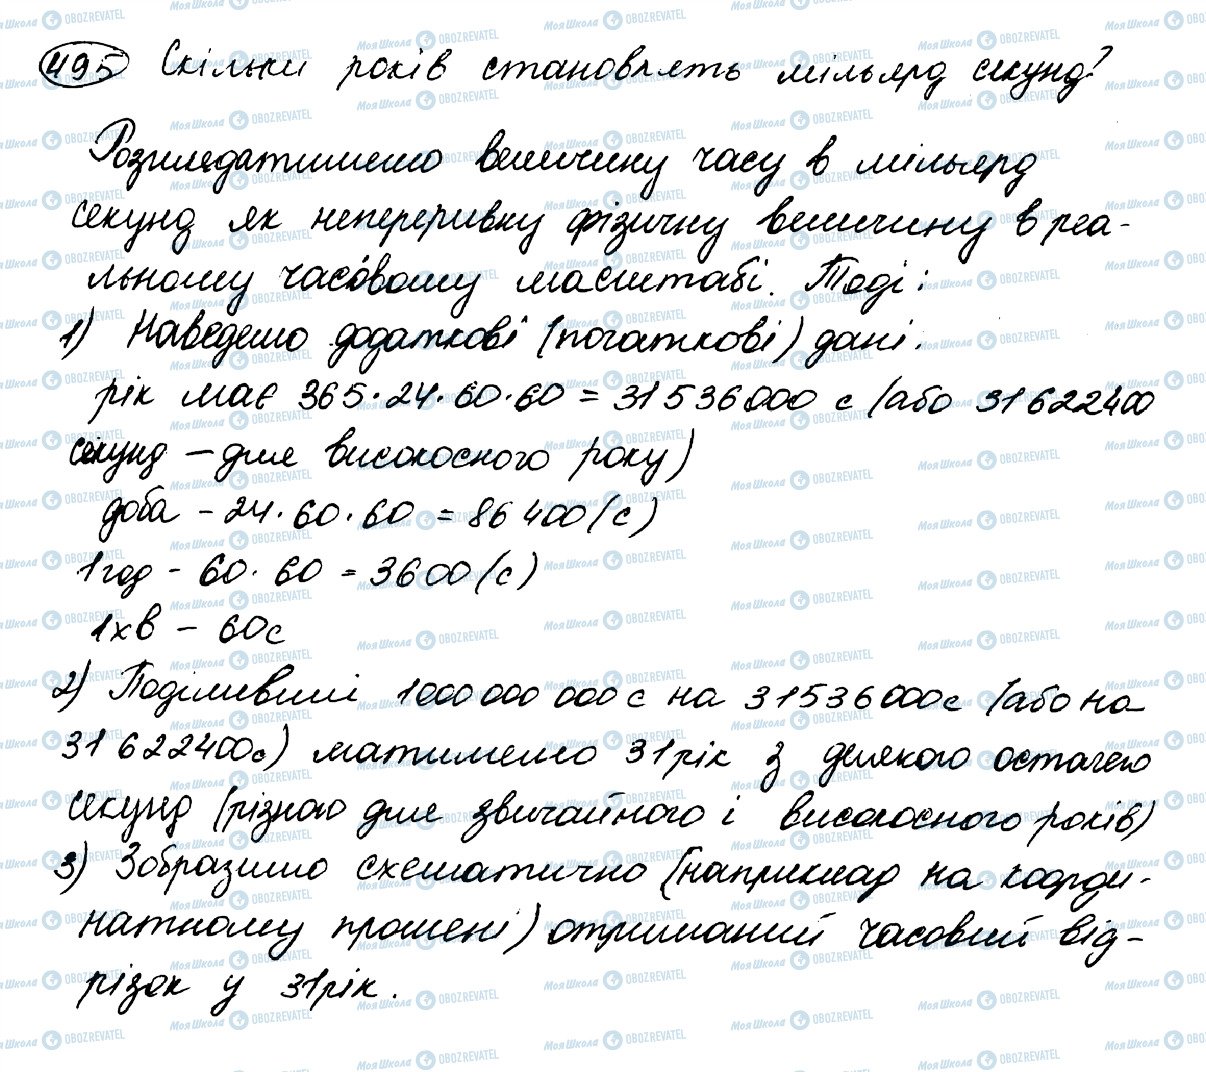 495 Скільки років становлять мільярд секунд?
Розглядатимемо величину часу в мільярд
секунд як неперервну фізичну величину в реа-
льному часовому масштабі. Тоді:
1) Наведемо додаткові (початкові) дані.
рік має 365·24·60·60 = 31536000 с (або 31622400
секунд – для високосного року)
доба – 24·60·60 = 86400 (с)
1 год – 60·60 = 3600 (с)
1 хв – 60с
2) Поділивши 1000 000 000 с на 31536000с (або на
31 622400с) матимемо 31 рік з деякою остачею
секунд (різною для звичайного і високосного років)
3) Зобразимо схематично (наприклад на коорди-
натному промені) отриманий часовий від-
різок у 31 рік.